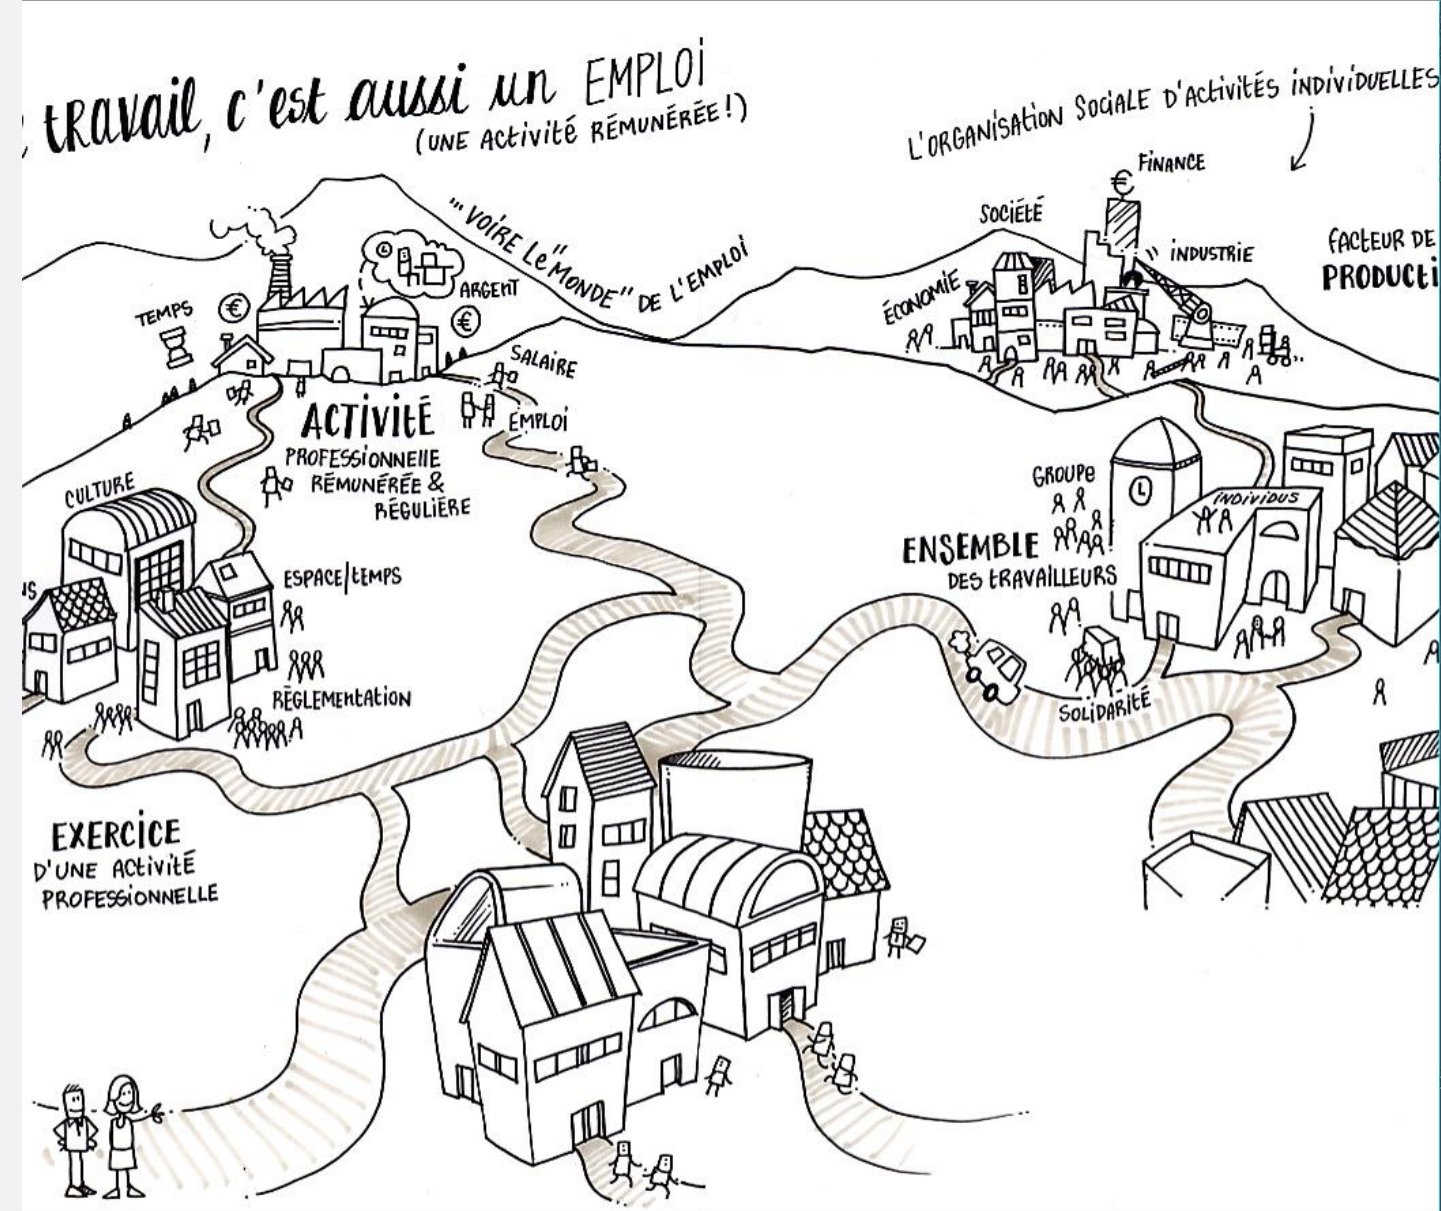 travail, c'est aussi un EMPLOI
(UNE ACTIVITÉ RÉMUNÉRÉE!)
..."VOIRE LE "MONDE" DE L'EMPLOI
L'ORGANISATION SOCIALE D'ACTIVITÉS INDIVIDUELLES
FINANCE
SOCIÉTÉ
INDUSTRIE
ÉCONOMIE
FACTEUR DE
PRODUCTI
TEMPS
ARGENT
SALAIRE
EMPLOI
ACTIVITÉ
PROFESSIONNELLE
RÉMUNÉRÉE &
RÉGULIÈRE
CULTURE
NS
ESPACE/TEMPS
RÉGLEMENTATION
EXERCICE
D'UNE ACTIVITÉ
PROFESSIONNELLE
GROUPE
INDIVIDUS
ENSEMBLE
DES TRAVAILLEURS
SOLIDARITÉ